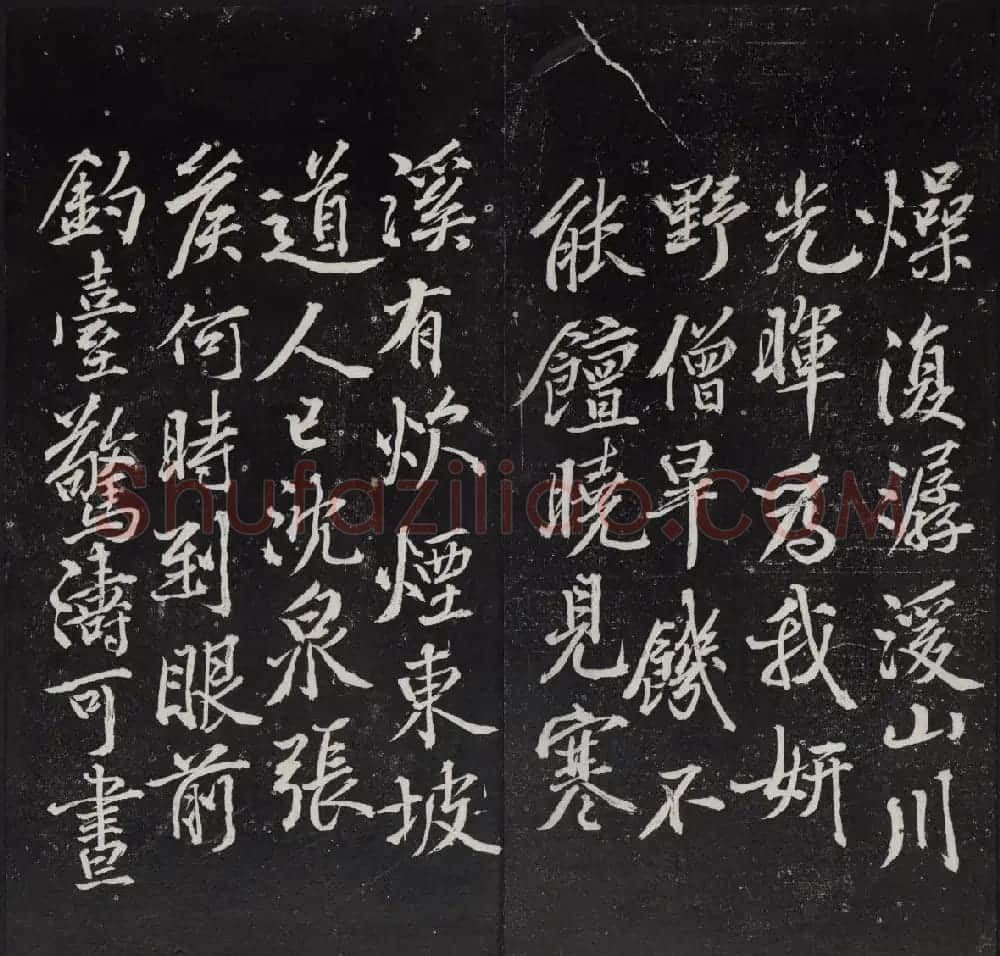 燥復潺湲山川
光暉為我妍
野僧旱饑不
能饘曉見寒
溪有炊煙東坡
道人已沈泉張
侯何時到眼前
釣臺驚濤可晝
Shufaziliao.COM